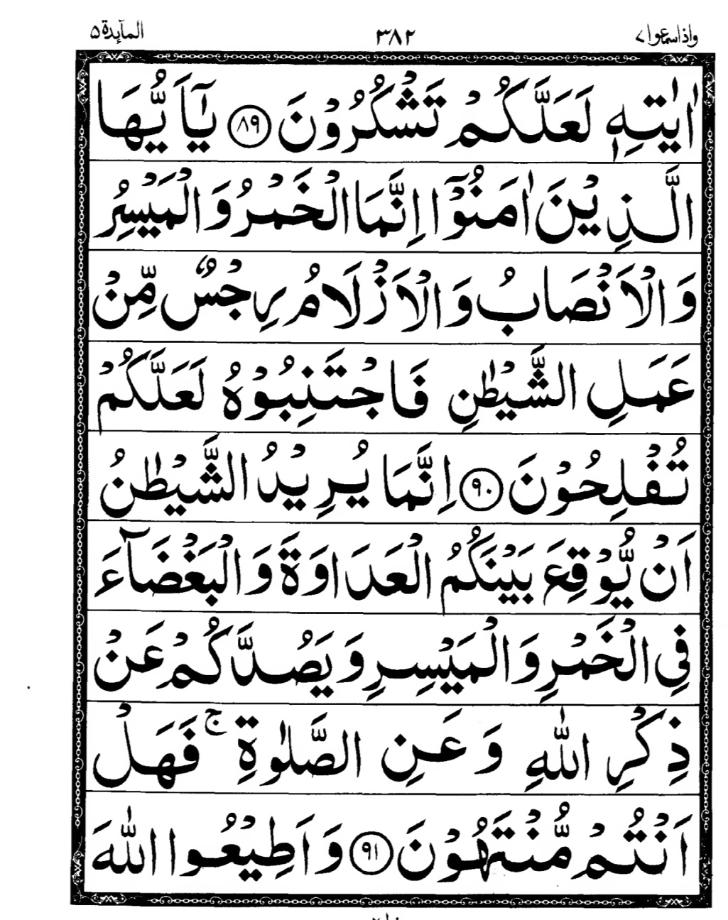 المآئدة ٥ ٣٨٢ واذا سمعوا ٧
اٰيٰتِهٖ لَعَلَّكُمْ تَشْكُرُوْنَ ﴿٨٩﴾ يٰٓاَيُّهَا
الَّذِيْنَ اٰمَنُوْٓا اِنَّمَا الْخَمْرُ وَالْمَيْسِرُ
وَالْاَنْصَابُ وَالْاَزْلَامُ رِجْسٌ مِّنْ
عَمَلِ الشَّيْطٰنِ فَاجْتَنِبُوْهُ لَعَلَّكُمْ
تُفْلِحُوْنَ ﴿٩٠﴾ اِنَّمَا يُرِيْدُ الشَّيْطٰنُ
اَنْ يُّوْقِعَ بَيْنَكُمُ الْعَدَاوَةَ وَالْبَغْضَآءَ
فِى الْخَمْرِ وَالْمَيْسِرِ وَيَصُدَّكُمْ عَنْ
ذِكْرِ اللّٰهِ وَعَنِ الصَّلٰوةِ ۚ فَهَلْ
اَنْتُمْ مُّنْتَهُوْنَ ﴿٩١﴾ وَاَطِيْعُوا اللّٰهَ